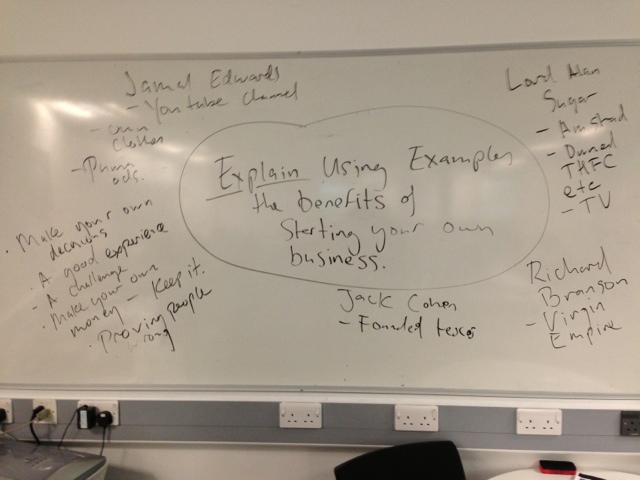 Jamal Edwards
- Youtube channel
- own
clothes
- Puma
ads.
Lord Alan
Sugar
- Amstrad
- Owned
THFC
etc
- TV
Explain Using Examples
the benefits of
starting your own
business.
• Make your own
decisions
• A good experience
- A challenge
• Make your own
money - Keep it.
• Proving people
wrong
Jack Cohen
- Founded tesco
Richard
Branson
- Virgin
Empire